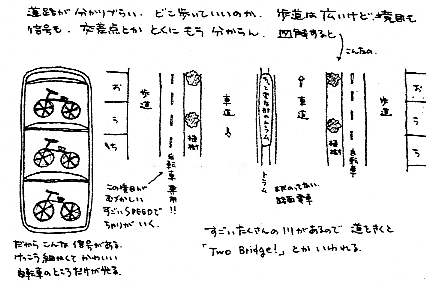 道路が分かりづらい。どこ歩いていいのか。歩道は広いけど境目も
信号も、交差点とかとくにもう分からん。図解すると
こんなの。
おうち
歩道
自転車専用!!
植樹
車道
トラム
車道
植樹
自転車
歩道
おうち
この境目が
むづかしい
すごいSPEEDで
ちゃりがいく。
路面電車
だからこんな信号がある。
けっこう細かくてかわいい
自転車のところだけが光る。
すごいたくさんの川があるので 道をきくと
「Two Bridge!」とかいわれる。